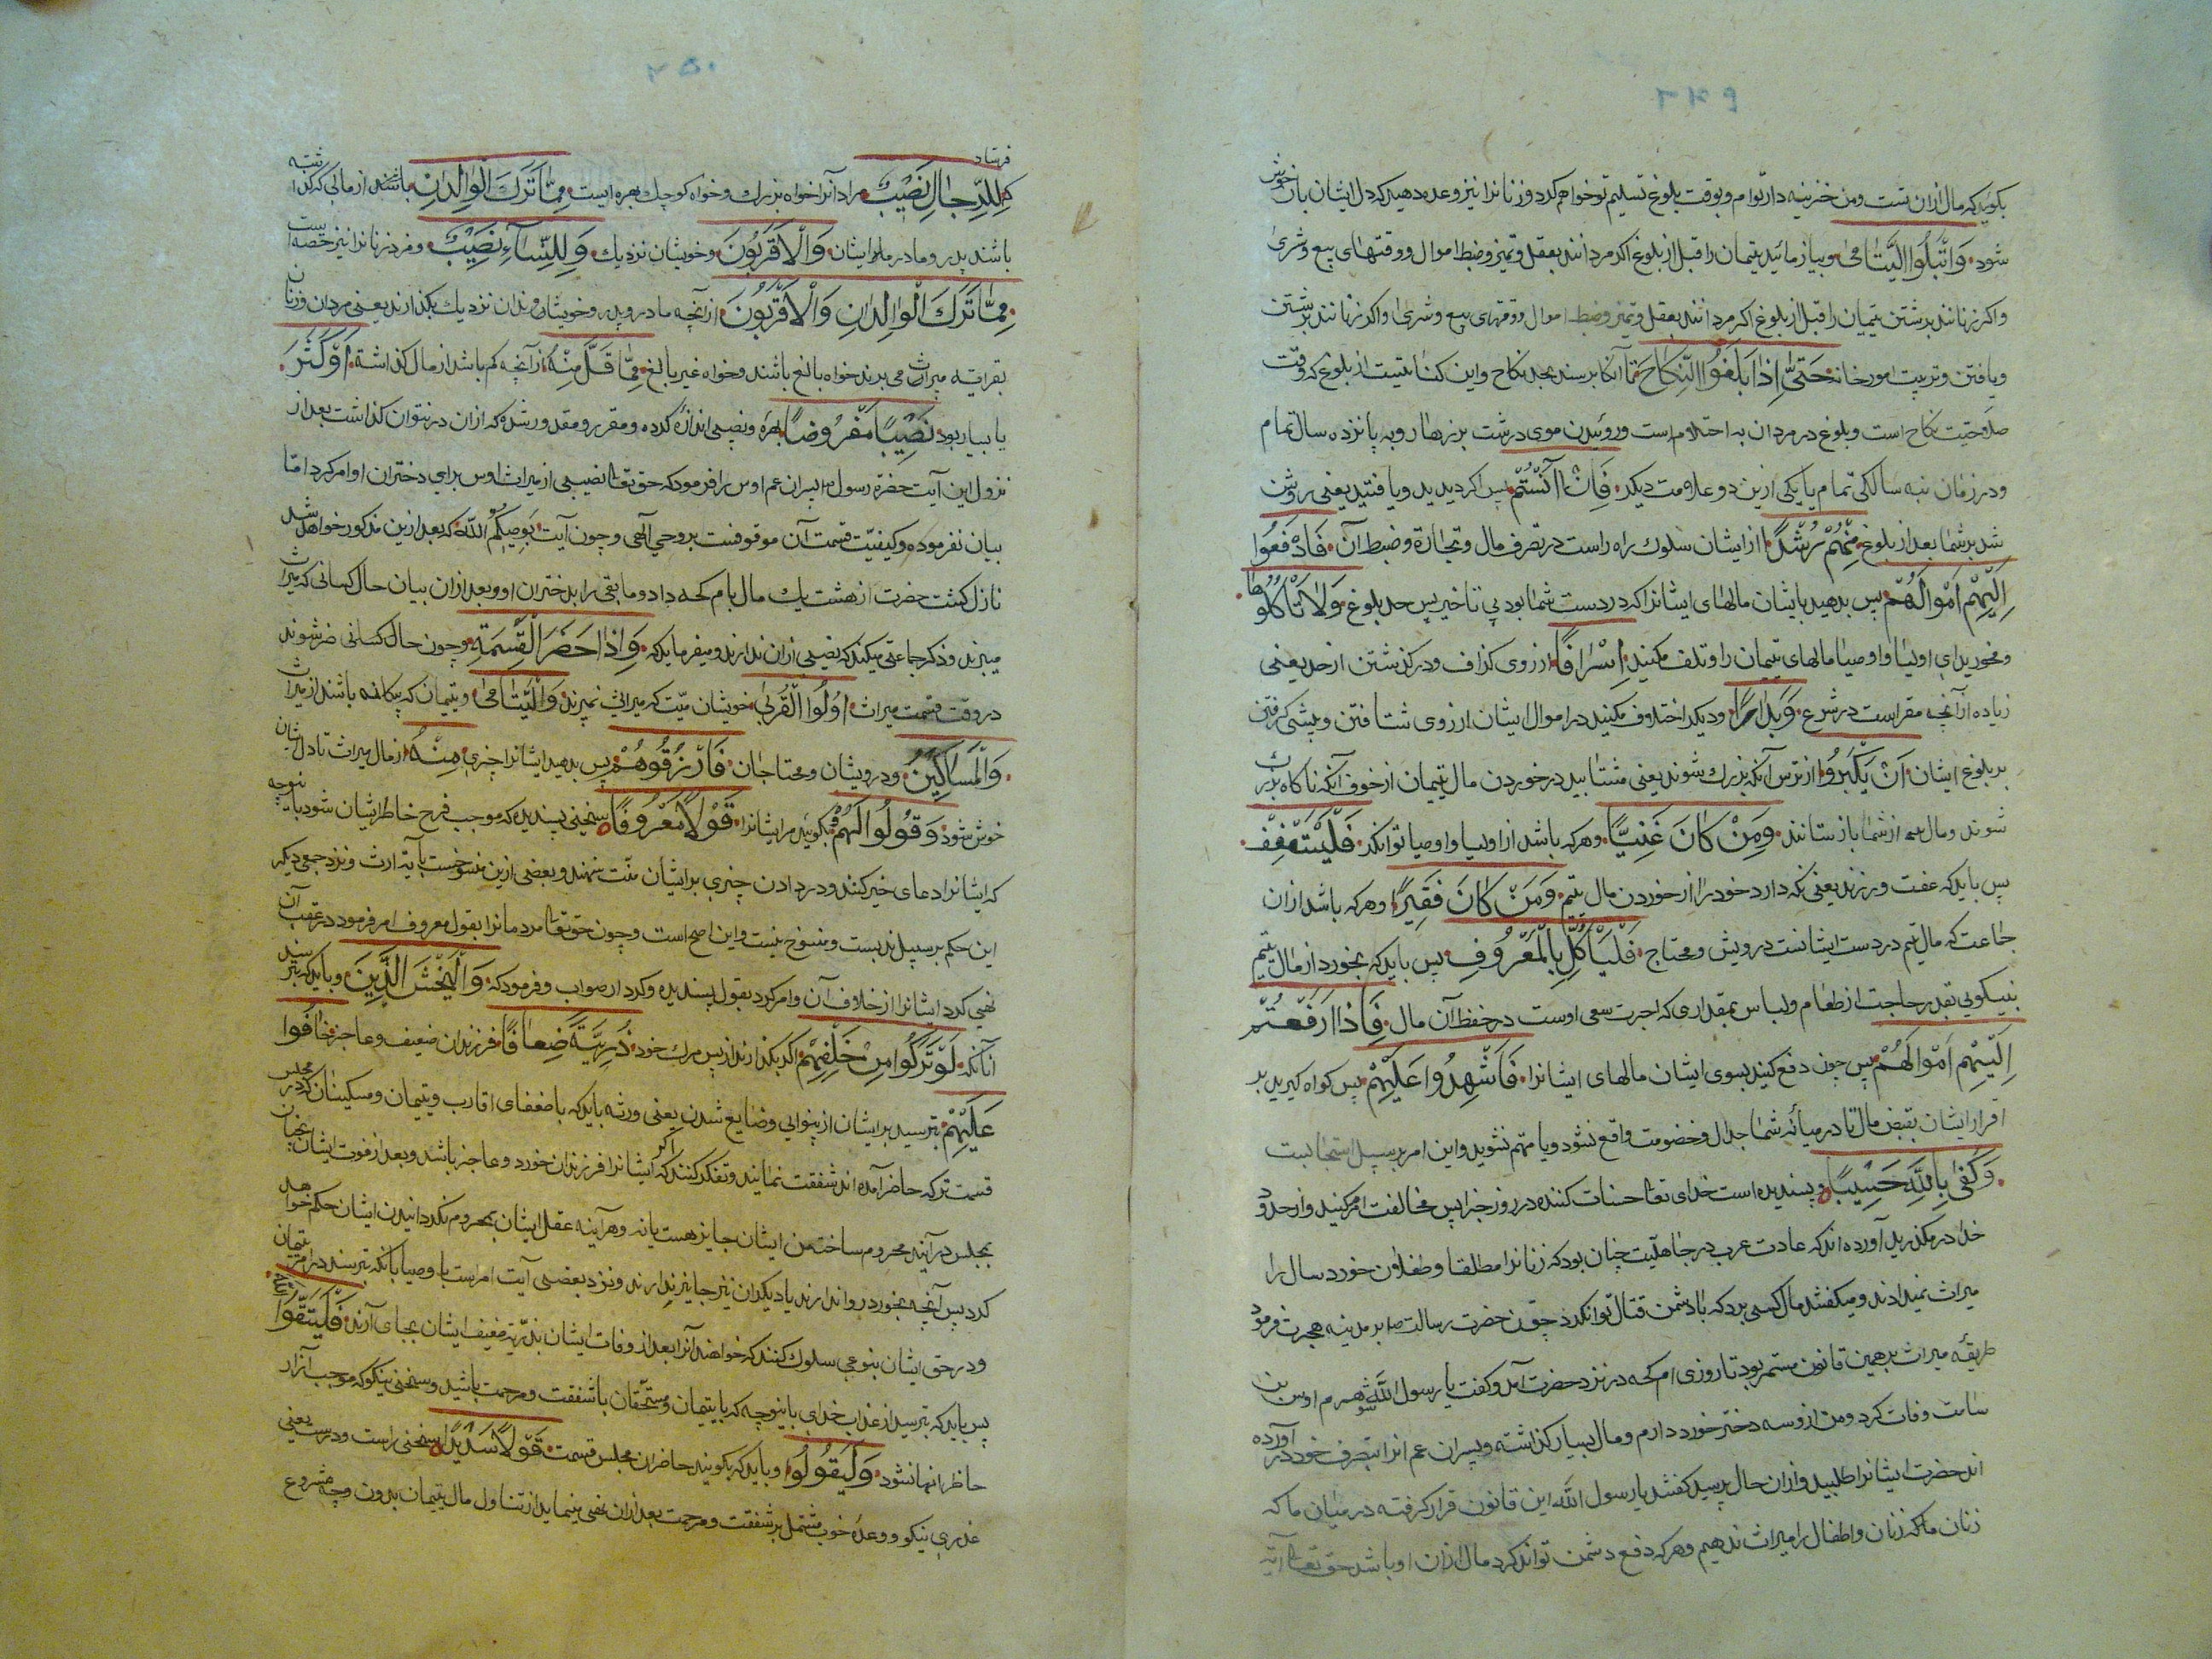 ۲۴۹
بکویید که مال ازان تست و من خزینه دار توام و بوقت بلوغ تسلیم تو خواهم کرد و زنانرا نیز وعده دهید که دل ایشان بآن خوش
شود وَابْتَلُوا الْیَتَامیٰ و بیازمائید یتیمان را قبل از بلوغ اکر مردانند بعقل و تمیز و ضبط اموال و وقتهای بیع و شریٰ
واکر زنانند برشتن یتیمان را قبل از بلوغ اکر مردانند بعقل و تمیز و ضبط اموال و وقتهای بیع و شریٰ واکر زنانند برشتن
و بافتن و تربیت امور خانه حَتّیٰ اِذَا بَلَغُوا النِّکَاحَ تا آنکاه برسند بحد نکاح و این کنایتیست از بلوغ که وقت
صلاحیت نکاح است و بلوغ در مردان به احتلام است و روئیدن موی درشت بر زهار و به پانزده سال تمام
و در زنان بنه سالکی تمام یا یکی ازین دو علامت دیکر فَاِنْ آنَسْتُمْ پس اکر دیدید و یافتید یعنی روشن
شد بر شما بعد از بلوغ مِنْهُمْ رُشْدًا از ایشان سلوک راه راست در تصرف مال و تجارة و ضبط آن فَادْفَعُوا
اِلَیْهِمْ اَمْوَالَهُمْ پس بدهید بایشان مالهای ایشانرا که در دست شما بود بی تاخیر پس حد بلوغ وَلَا تَأْکُلُوهَا
و مخورید ای اولیا و اوصیا مالهای یتیمان را و تلف مکنید اِسْرَافًا از روی کزاف و در کذشتن از حد یعنی
زیاده از آنچه مقرر است در شرع وَبِدَارًا و دیکر اختلاف مکنید در اموال ایشان از روی شتافتن و پیشی کرفتن
بر بلوغ ایشان اَنْ یَکْبَرُوا از ترس آنکه بزرک شوند یعنی مشتابید در خوردن مال یتیمان از خوف آنکه ناکاه بزرک
شوند و مال از شما بازستانند وَمَنْ کَانَ غَنِیًّا و هر که باشد از اولیا و اوصیا توانکر فَلْیَسْتَعْفِفْ
پس باید که عفت ورزند یعنی نکه دارد خود را از خوردن مال یتیم وَمَنْ کَانَ فَقِیرًا و هر که باشد ازان
جماعت که مال یتیم در دست ایشانست درویش و محتاج فَلْیَأْکُلْ بِالْمَعْرُوفِ پس باید که بخورد از مال یتیم
بنیکویی بقدر حاجت از طعام و لباس بمقداری که اجرت سعی اوست در حفظ آن مال فَاِذَا دَفَعْتُمْ
اِلَیْهِمْ اَمْوَالَهُمْ پس چون دفع کنید بسوی ایشان مالهای ایشانرا فَاَشْهِدُوا عَلَیْهِمْ پس کواه کیرید بر
اقرار ایشان بقبض مال تا در میانه شما جدال و خصومت واقع نشود و یا متهم نشوید و این امر بر سبیل استحبابست
وَکَفیٰ بِاللّٰهِ حَسِیبًا و پسندیده است خدای تعالی کننده در روز جزا پس مخالفت امر مکنید و از حدود
خدا در مکذرید آورده اند که عادت عرب در جاهلیت چنان بود که زنانرا مطلقا و طفلان خورد سال را
میراث نمیدادند و میکفتند مال کسی برد که با دشمن قتال تواند کرد چون حضرت رسالت ص بمدینه هجرت فرمود
طریقه میراث بر همین قانون مستمر بود تا روزی ام کحه در نزد حضرت آمد و کفت یا رسول اللّٰه شوهرم اوس بن
ثابت وفات کرد و من ازو سه دختر خورد دارم و مال بسیار کذاشته و پسران عم آنرا بتصرف خود در آورده
اند حضرت ایشانرا طلبید و ازان حال پرسید کفتند یا رسول اللّٰه این قانون قرار کرفته در میان ما که
زنان ما که زنان و اطفال را میراث ندهیم و هر که دفع دشمن تواند کرد مال ازان او باشد حق تعالی آیة
۲۵۰
فرستاد
که لِلرِّجَالِ نَصِیبٌ مرادانرا خواه بزرک و خواه کوچک بهره ایست مِمَّا تَرَکَ الْوَالِدَانِ از مالی که کذاشته
باشند پدر و مادر مر ایشان وَالْاَقْرَبُونَ و خویشان نزدیک وَلِلنِّسَاءِ نَصِیبٌ و مر زنانرا نیز حصه ایست
مِمَّا تَرَکَ الْوَالِدَانِ وَالْاَقْرَبُونَ از آنچه مادر و پدر و خویشان نزدیک بکذارند یعنی مردان و زنان
بقرابة میراث می برند خواه بالغ باشند و خواه غیر بالغ مِمَّا قَلَّ مِنْهُ از آنچه کم باشد از مال کذاشته اَوْ کَثُرَ
یا بسیار بود نَصِیبًا مَفْرُوضًا بهره و نصیبی اندازه کرده و مقرر و مقدور شده که ازان در نتوان کذاشت بعد از
نزول این آیت حضرة رسول پسران عم اوس را فرمود که حق تعالی نصیبی از میراث اوس برای دختران او امر کرد اما
بیان نفرموده و کیفیت قسمت آن موقوفست بر وحی آلهی و چون آیت یُوصِیکُمُ اللّٰهُ که بعد ازین مذکور خواهد شد
نازل کشت حضرت از هشت یک مال بام کحه داد و مابقی را بدختران او و بعد ازان بیان حال کسانی که میراث
میبرند و ذکر جماعتی میکند که نصیبی ازان ندارند و میفرماید که وَاِذَا حَضَرَ الْقِسْمَةَ و چون حال کسانی حاضر شوند
در وقت قسمت میراث اُولُوا الْقُرْبیٰ خویشان میت که میراث نمیبرند وَالْیَتَامیٰ و یتیمان که بیکانه باشند از میراث
وَالْمَسَاکِینُ و درویشان و محتاجان فَارْزُقُوهُمْ پس بدهید ایشانرا چیزی مِنْهُ از مال میراث تا دل ایشان
خوش شود وَقُولُوا لَهُمْ و بکویید مر ایشانرا قَوْلًا مَعْرُوفًا سخنی پسندیده که موجب فرح خاطر ایشان شود باینوجه
که ایشانرا دعای خیر کنند و در دادن چیزی بر ایشان منت ننهند و بعضی ازین منسوخست بآیة ارث و نزد جمعی دیکر
این حکم بر سبیل ندبست و منسوخ نیست و این اصح است و چون حق تعالی مردمانرا بقول معروف امر فرمود در عقب آن
نهی کرد ایشانرا از خلاف آن و امر کرد بقول پسندیده و کردار صواب و فرمود که وَلْیَخْشَ الَّذِینَ و باید که بترسند
آنانکه لَوْ تَرَکُوا مِنْ خَلْفِهِمْ اکر بکذارند از پس مرک خود ذُرِّیَّةً ضِعَافًا فرزندان ضعیف و عاجز خَافُوا
عَلَیْهِمْ بترسید بر ایشان از بینوایی و ضایع شدن یعنی ورثه باید که با ضعفای اقارب و یتیمان و مسکینان که در مجلس
قسمت ترکه حاضر آمده اند شفقت نمایند و تفکر کنند که اکر ایشانرا فرزندان خورد و عاجز باشد و بعد از فوت ایشان بچنان
مجلس در آیند محروم ساختن ایشان جایز هست یا نه و هر آینه عقل ایشان بمحروم نکردانیدن ایشان حکم خواهد
کرد پس آنچه بخود روا ندارند با دیکران نیز جایز ندارند و نزد بعضی آیت امر است باوصیا بآنکه بترسند در امر یتیمان
و در حق ایشان بنوعی سلوک کنند که خواهند آنرا بعد از وفات ایشان بذریة ضعیف ایشان بجای آرند فَلْیَتَّقُوا اللّٰهَ
پس باید که بترسید از عذاب خدای باینوجه که با یتیمان و مستحقان با شفقت و مرحمت باشید و سخنی نیکو که موجب آزار
خاطر انها نشود وَلْیَقُولُوا و باید که بکویند حاضران مجلس قسمت قَوْلًا سَدِیدًا سخنی راست و درست یعنی
عذری نیکو و وعده خوب مشتمل بر شفقت و مرحمت بعد ازان نهی مینماید از تناول مال یتیمان بدون وجه مشروع